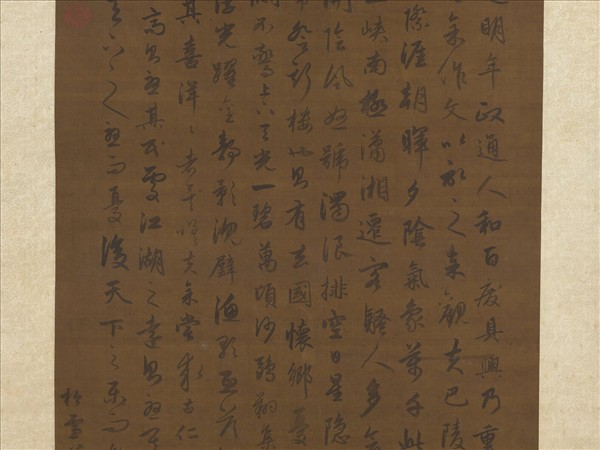 明年政通人和百廢具興乃重
余作文以記之余觀夫巴陵
際涯朝暉夕陰氣象萬千此
峽南極瀟湘遷客騷人多會
開陰風怒號濁浪排空日星隱
登斯樓也則有去國懷鄉憂
瀾不驚上下天光一碧萬頃沙鷗翔集
浮光躍金靜影沉璧漁歌互答
其喜洋洋者嗟夫余嘗求古仁
高則憂其民處江湖之遠則憂其
天下之憂而憂後天下之樂而
松雪